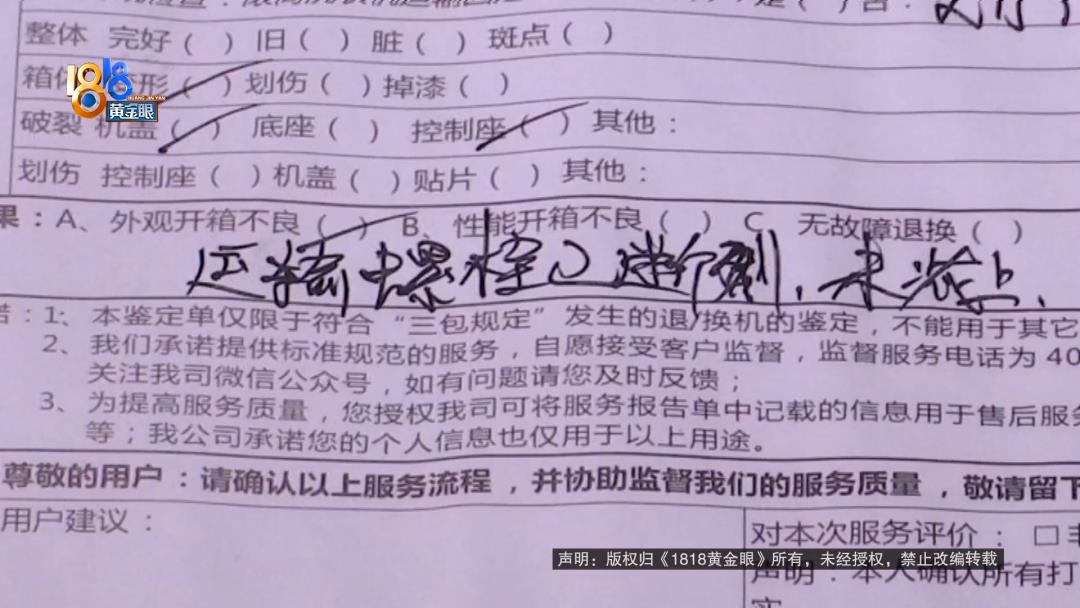 整体 完好( ) 旧( ) 脏( ) 斑点( )
箱体 变形( ) 划伤( ) 掉漆( )
1818
黄金眼
破裂 机盖( ) 底座( ) 控制座( ) 其他：
划伤 控制座( ) 机盖( ) 贴片( ) 其他：
果：A、外观开箱不良( ) B、性能开箱不良( ) C 无故障退换( )
运输中螺栓已 未
诺：1、本鉴定单仅限于符合“三包规定”发生的退/换机的鉴定，不能用于其它
2、我们承诺提供标准规范的服务，自愿接受客户监督，监督服务电话为 40
关注我司微信公众号，如有问题请您及时反馈；
3、为提高服务质量，您授权我司可将服务报告单中记载的信息用于售后服务
等；我公司承诺您的个人信息也仅用于以上用途。
尊敬的用户：请确认以上服务流程，并协助监督我们的服务质量，敬请留下
用户建议：
对本次服务评价：□
声明：版权归《1818黄金眼》所有，未经授权，禁止改编转载
声明：本人确认所有打